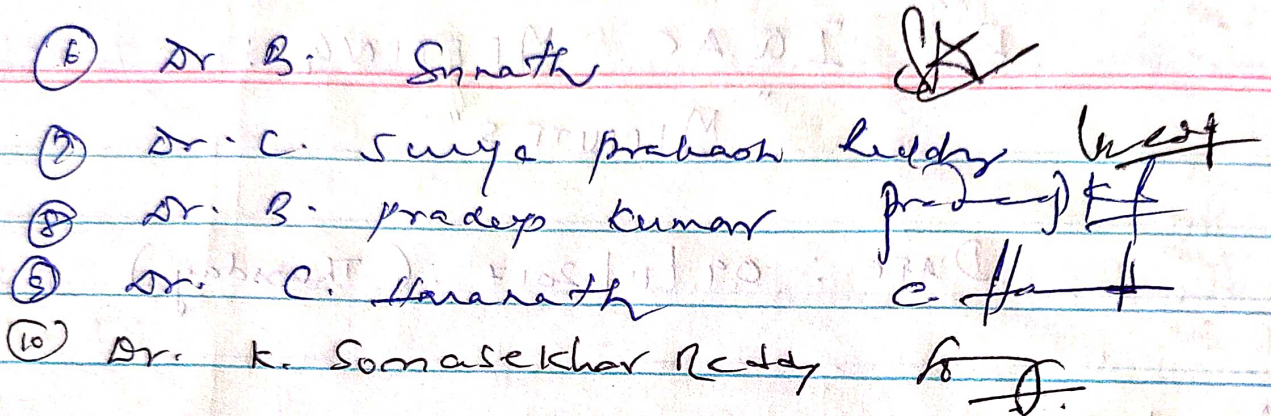 6 Dr B. Srinath
7 Dr. C. Surya prakash Reddy
8 Dr. B. pradeep kumar pradeep k
9 Dr. C. Haranath C. Ha
10 Dr. K. Somasekhar Reddy